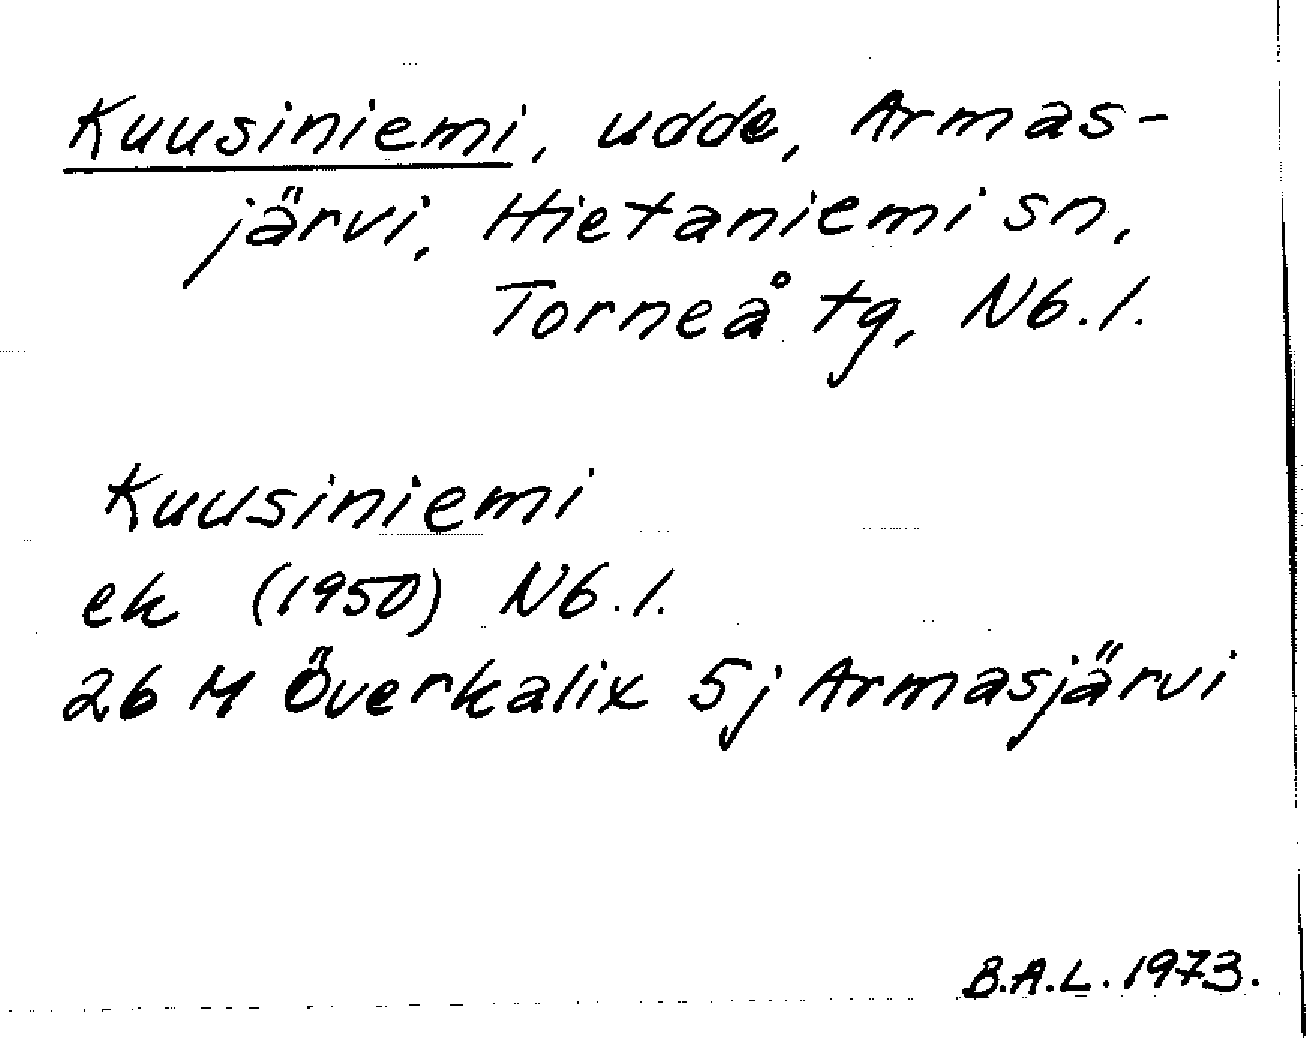 Kuusiniemi, udde, Armas-
järvi, Hietaniemi sn,
Torneå tg, Nb. l.
Kuusiniemi
ek (1950) Nb. l.
26 M Överkalix 5j Armasjärvi
B.A.L. 1973.